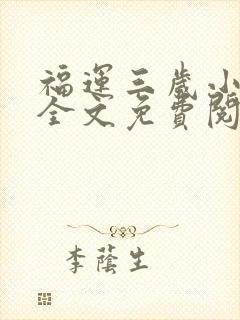 福運三歲小
全文免費閱
李蔭生